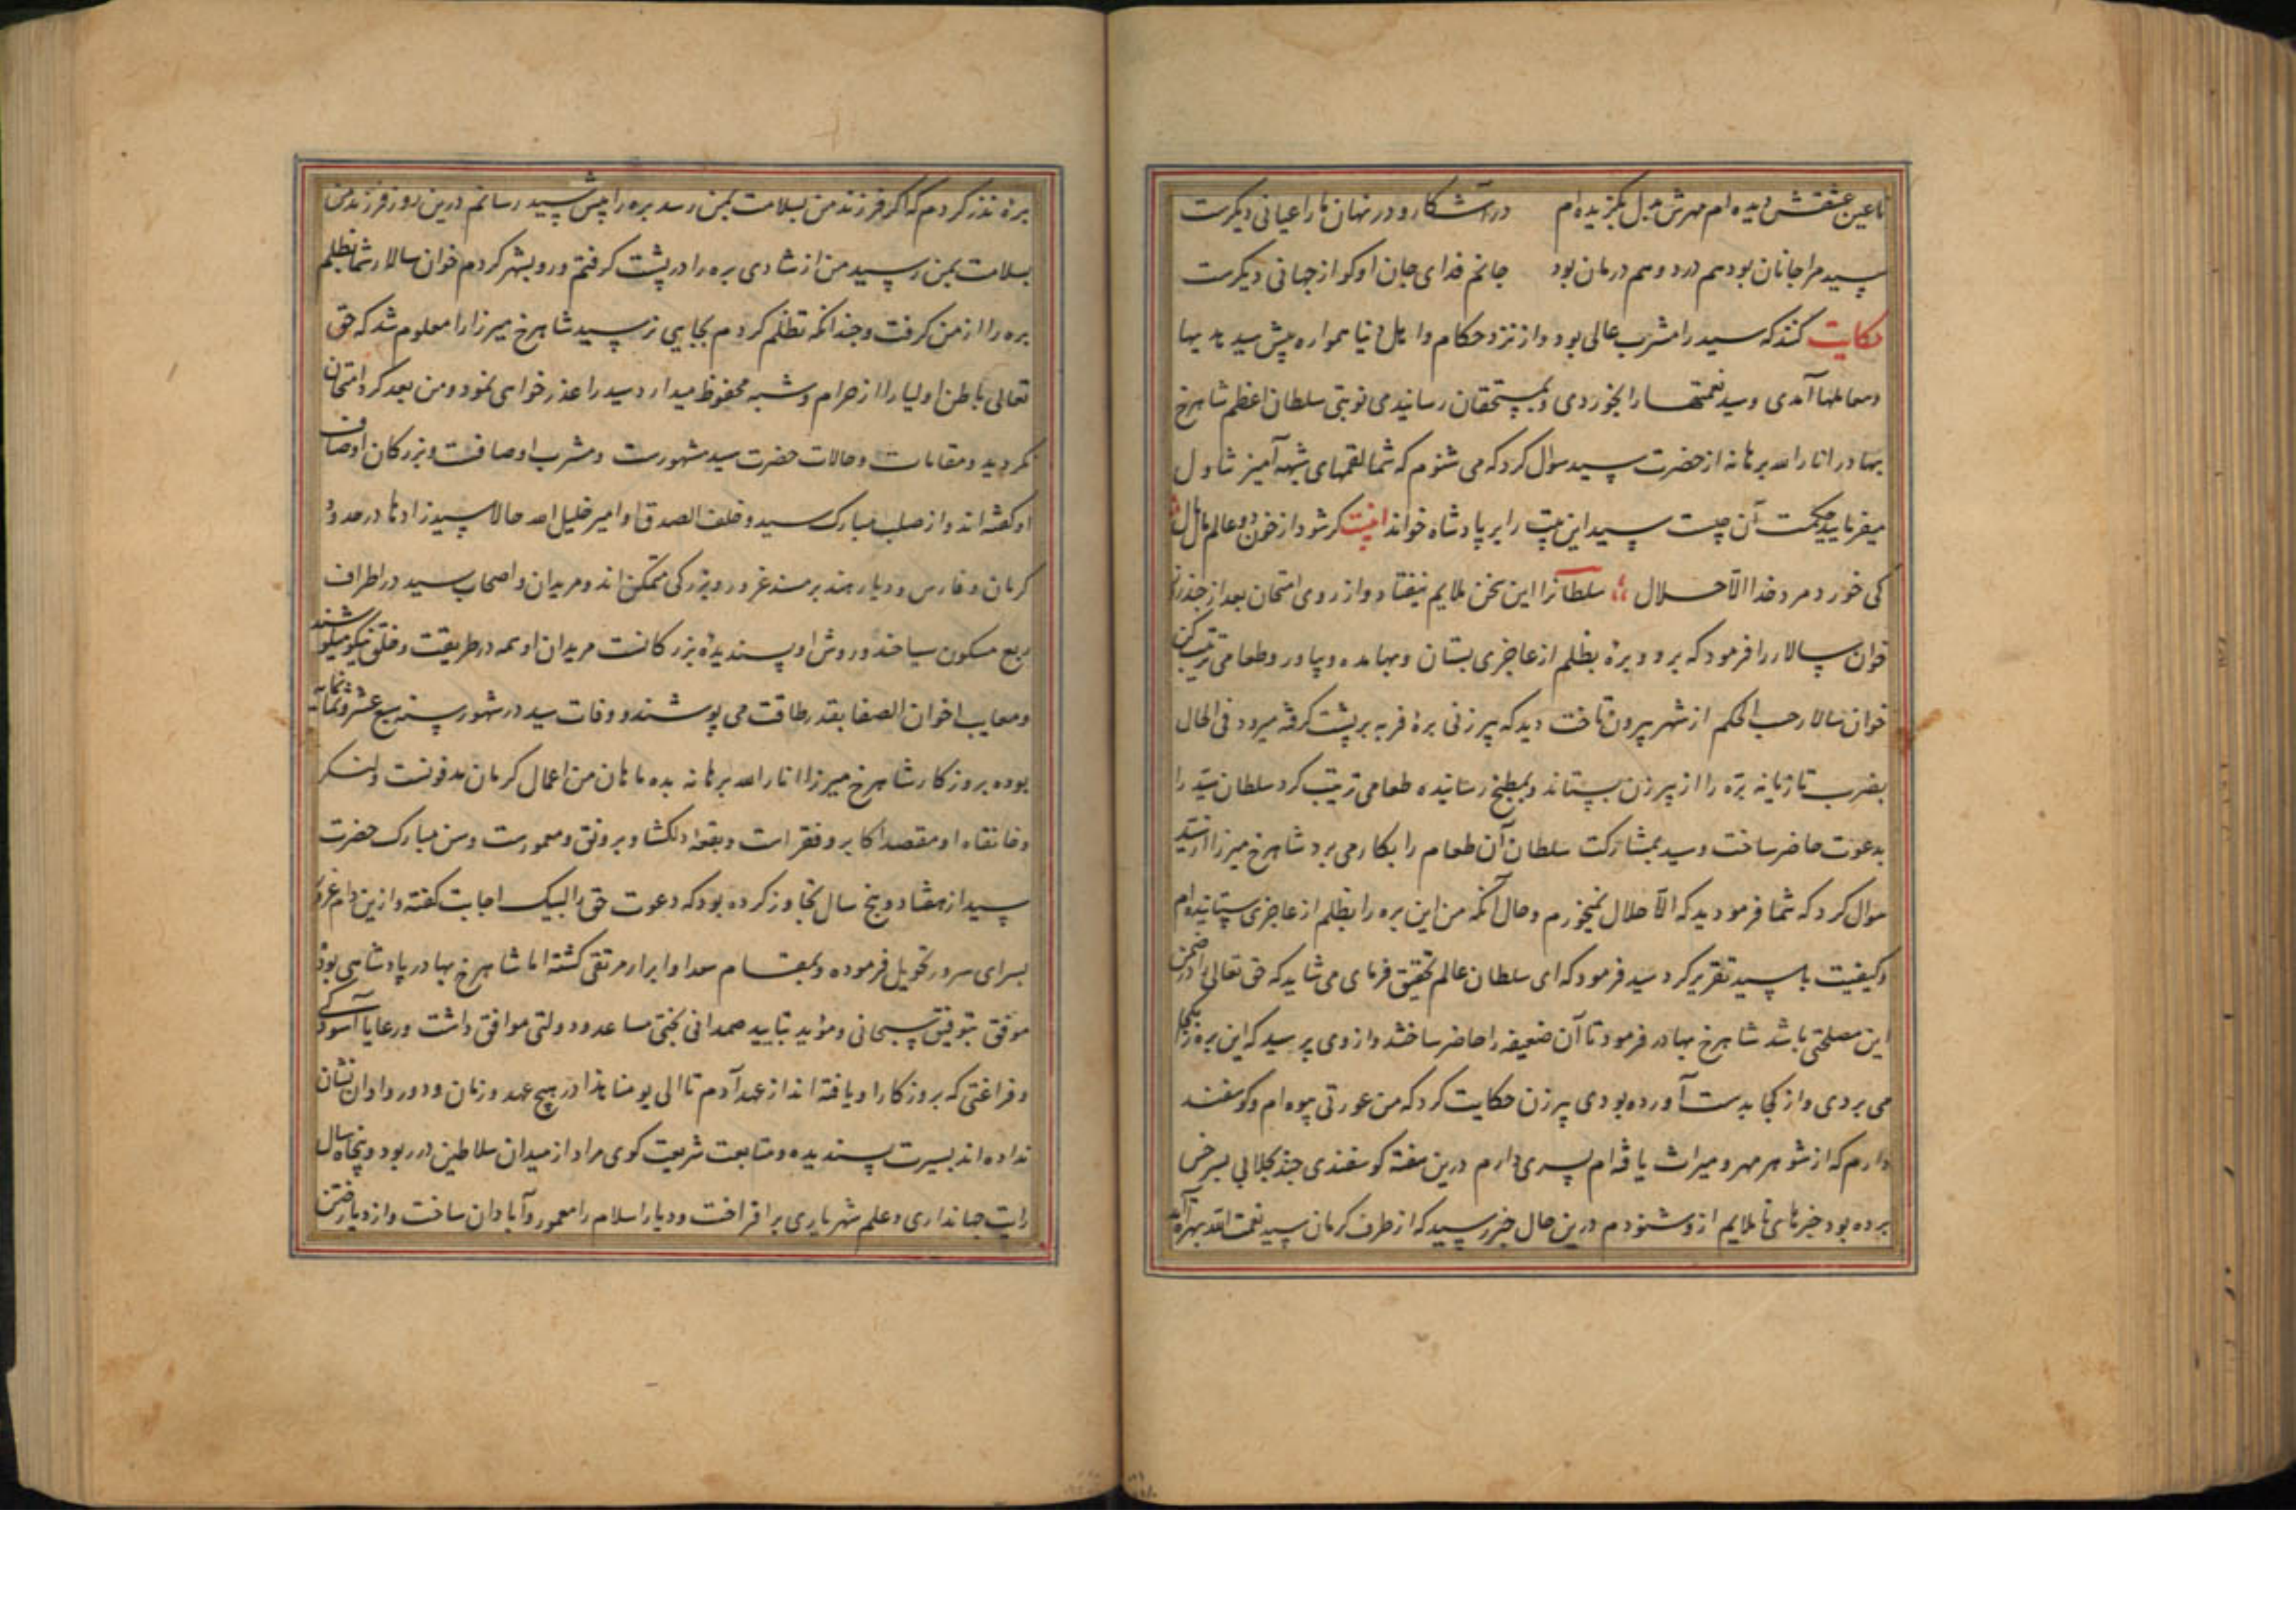 تا عین عشقش دیده‌ام مهرش بدل بگزیده‌ام در آشکار و در نهان ما را عیانی دیکرست
سید مرا جانان بود هم درد و هم درمان بود جانم فدای جان او کو از جهانی دیکرست
حکایت کنند که سید را مشرب عالی بود و از نزد حکام و اهل دنیا همواره پیش سید هدیها
و معاملها آمدی و سید نعمتها را بخوردی و بمستحقان رسانیدمی نوبتی سلطان اعظم شاهرخ
بهادر انار الله برهانه از حضرت سید سوال کرد که می شنوم که شما لقمهای شبهه آمیز تناول
میفرمایید حکمت آن چیست سید این بیت را بر پادشاه خواند بیت کر شود از خون دو عالم مال مال
کی خورد مرد خدا الا حلال سلطانرا این سخن ملایم نیفتاد و از روی امتحان بعد از چند روز
خوان سالار را فرمود که برو و برهٔ بظلم از عاجزی بستان و بها مده و بیاور و طعامی ترتیب کن
خوان سالار حسب الحکم از شهر بیرون تاخت دید که پیرزنی برهٔ فربه بر پشت کرفته میرود فی الحال
بضرب تازیانه بره را از پیرزن بستاند و بمطبخ رسانیده طعامی ترتیب کرد سلطان سید را
بدعوت حاضر ساخت و سید بمشارکت سلطان آن طعام را بکار می برد شاهرخ میرزا از سید
سوال کرد که شما فرمودید که الا حلال نمیخورم و حال آنکه من این بره را بظلم از عاجزی ستانیده‌ام
و کیفیت با سید تقریر کرد سید فرمود که ای سلطان عالم تحقیق فرمای می شاید که حق تعالی را در ضمن
این مصلحتی باشد شاهرخ بهادر فرمود تا آن ضعیفه را حاضر ساختند و از وی پرسید که این بره را بکجا
می بردی و از کجا بدست آورده بودی پیرزن حکایت کرد که من عورتی بیوه‌ام و کوسفند
دارم که از شوهر مهر و میراث یافته‌ام پسری دارم درین هفته کوسفندی چند بجلابی بسرخس
برده بود خبرهای ناملایم ازو شنودم درین حال خبر رسید که از طرف کرمان سید نعمت الله بهراة آمده
برهٔ نذر کردم که اکر فرزند من بسلامت بمن رسد بره را پیش سید رسانم درین روز فرزند من
بسلامت بمن رسید من از شادی بره را در پشت کرفتم و رو بشهر کردم خوان سالار شما بظلم
بره را از من کرفت و چندانکه تظلم کردم بجایی نرسید شاهرخ میرزا را معلوم شد که حق
تعالی باطن اولیا را از حرام و شبهه محفوظ میدارد سید را عذر خواهی نمود و من بعد کرد امتحان
نکردید و مقامات و حالات حضرت سید مشهورست و مشرب او صافست و بزرکان اوصاف
او کفته‌اند و از صلب مبارک سید و خلف الصدق او امیر خلیل الله حالا سید زاد‌ها در حدود
کرمان و فارس و دیار هند بر مسند عز و بزرکی متمکن‌اند و مریدان و اصحاب سید در اطراف
ربع مسکون سیاحند و روش او پسندیدهٔ بزرکانست مریدان او همه در طریقت و خلق نیکو میکوشند
و معایب اخوان الصفا بقدر طاقت می پوشند و وفات سید در شهور سنه سبع عشر و ثمانمائه
بوده بروزکار شاهرخ میرزا انار الله برهانه بده ماهان من اعمال کرمان مدفونست و لنکر
و خانقاه او مقصد اکابر و فقراست و بقعهٔ دلکشا و برونق و معمورست و سن مبارک حضرت
سید از هفتاد و پنج سال تجاوز کرده بود که دعوت حق را لبیک اجابت کفته و ازین دام غرور
بسرای سرور تحویل فرموده و بمقام سعدا و ابرار مرتقی کشته اما شاهرخ بهادر پادشاهی بود
موفق بتوفیق سبحانی و مؤید بتایید صمدانی بختی مساعد و دولتی موافق داشت و رعایا آسودکی
و فراغتی که بروزکار او یافته‌اند از عهد آدم تا الی یومنا هذا در هیچ عهد و زمان و دور و اوان نشان
نداده‌اند بسیرت پسندیده و متابعت شریعت کوی مراد از میدان سلاطین در ربود و پنجاه سال
رایت جهانداری و علم شهریاری بر افراخت و دیار اسلام را معمور و آبادان ساخت و از دیار ختن